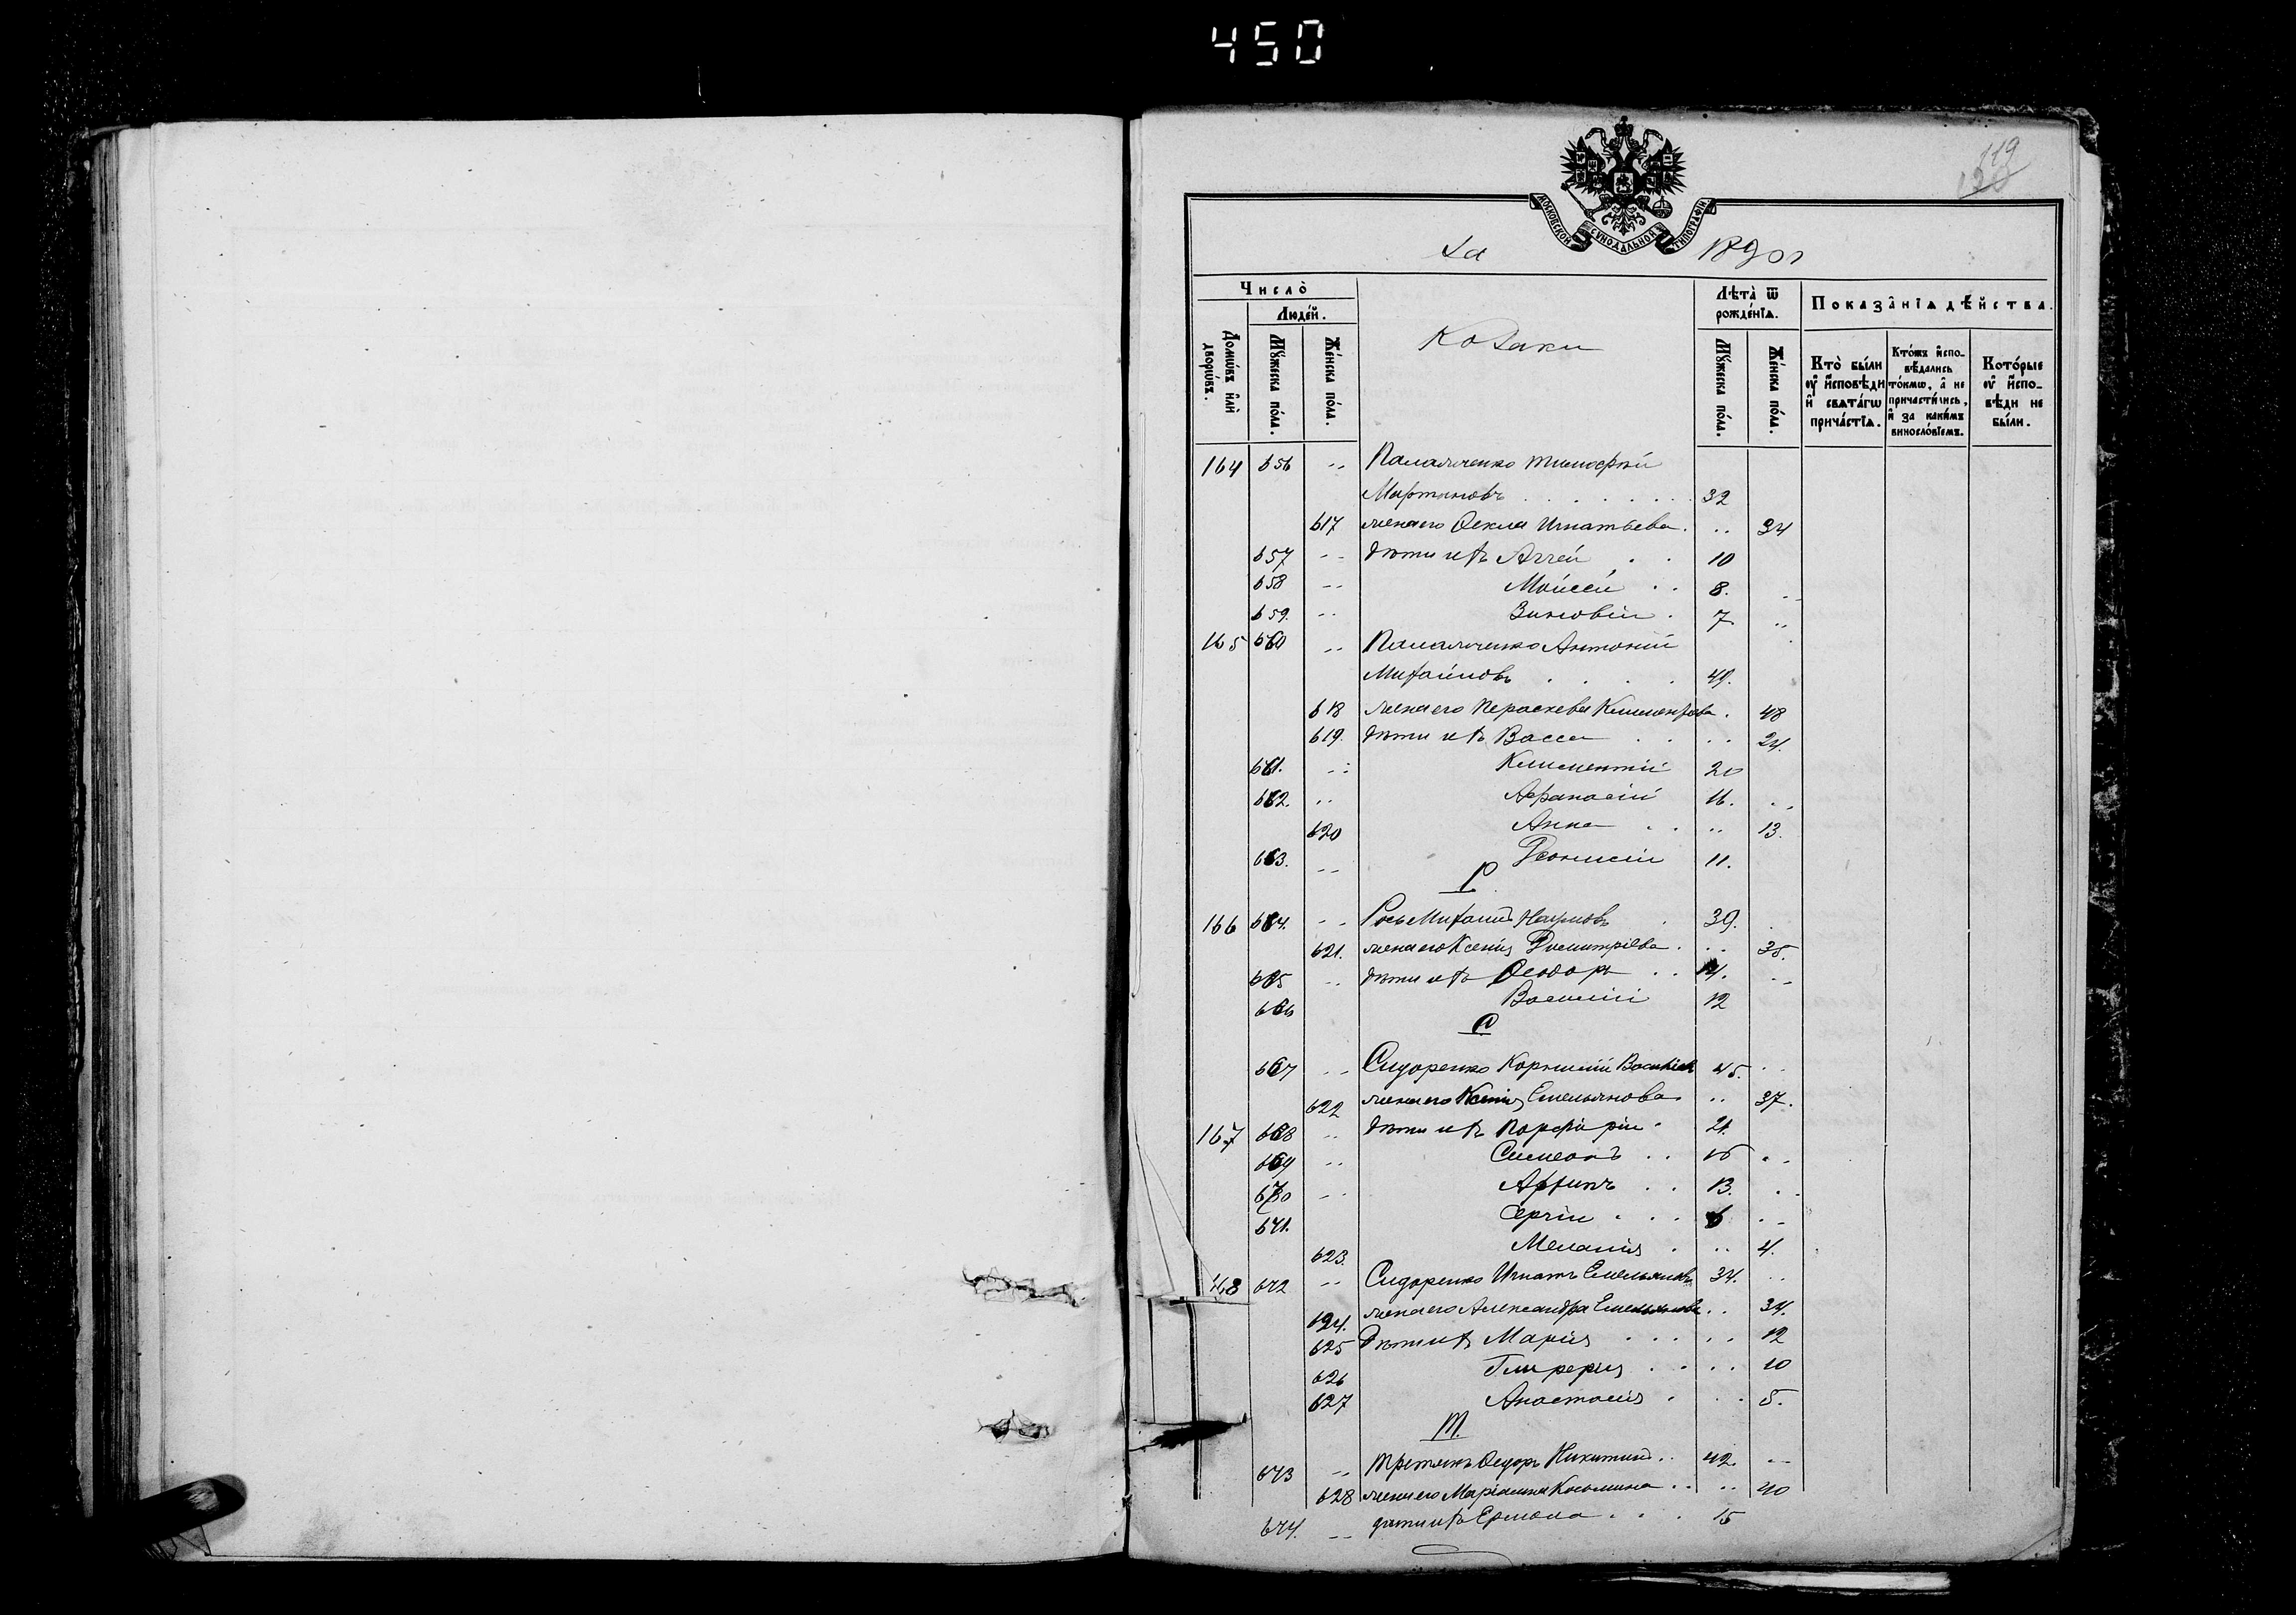 450
119
120
МОСКОВСКОЙ СѴНОДАЛЬНОЙ ТИПОГРАФІИ
За 1890 г
Число̀
Людéй.
Домѡ́въ и҆лѝ дворѡ́въ.
Мꙋ́жеска по́ла.
Же́нска по́ла.
Козаки
Лѣта̀ ѿ рожде́нїѧ.
Мꙋ́жеска по́ла.
Же́нска по́ла.
Показа̂нїѧ дѣ́йства.
Кто̀ бы́ли ᲂу҆ и҆сповѣди и҆ свѧта́гѡ прича́стїѧ.
Кто́мъ и҆спо-вѣдались то́кмѡ, а҆ не причасти́лись, и҆ за каки́мъ винослóвїемъ.
Кото́рые ᲂу҆ и҆спо-вѣди не бы́ли.
164 656 Паламаренко Тимофей
Мартиновъ 32
617 жена его Ѳекла Игнатьева 34
657 дѣти ихъ Аггей 10
658 Моисей 8.
659. Зиновій 7
165 660 Антоній
Михайловъ 49.
618 жена его Параскева Климентьева 48
619. дѣти ихъ Васса 24.
661. Климентій 20
662. Афанасій 16.
620 Анна 13.
663. Діонисій 11.
Р
166 664. Рось Михаилъ Наумовъ 39.
621. жена его Ксенія Димитріева 35.
665 дѣти ихъ Ѳеодоръ 14.
666 Василій 12
С
667 Сидоренко Корнилій Васильев 45.
622 жена его Ксенія Емельянова 37.
167 668 дѣти ихъ Порфирій 21.
669 Симеонъ 16
670 Архипъ 13.
671. Сергій 6
623. Меланія 4.
168 672 Сидоренко Игнатъ Емельяновъ 34.
624. жена его Александра Емельянова 34.
625 Дѣти ихъ Марія 12
626 Гликерія 10
627 Анастасія 5.
Т.
673 Третякъ Ѳедоръ Никитинъ 42.
628 жена его Маріамна Косьмина 40
674. дѣти ихъ Ермола 15